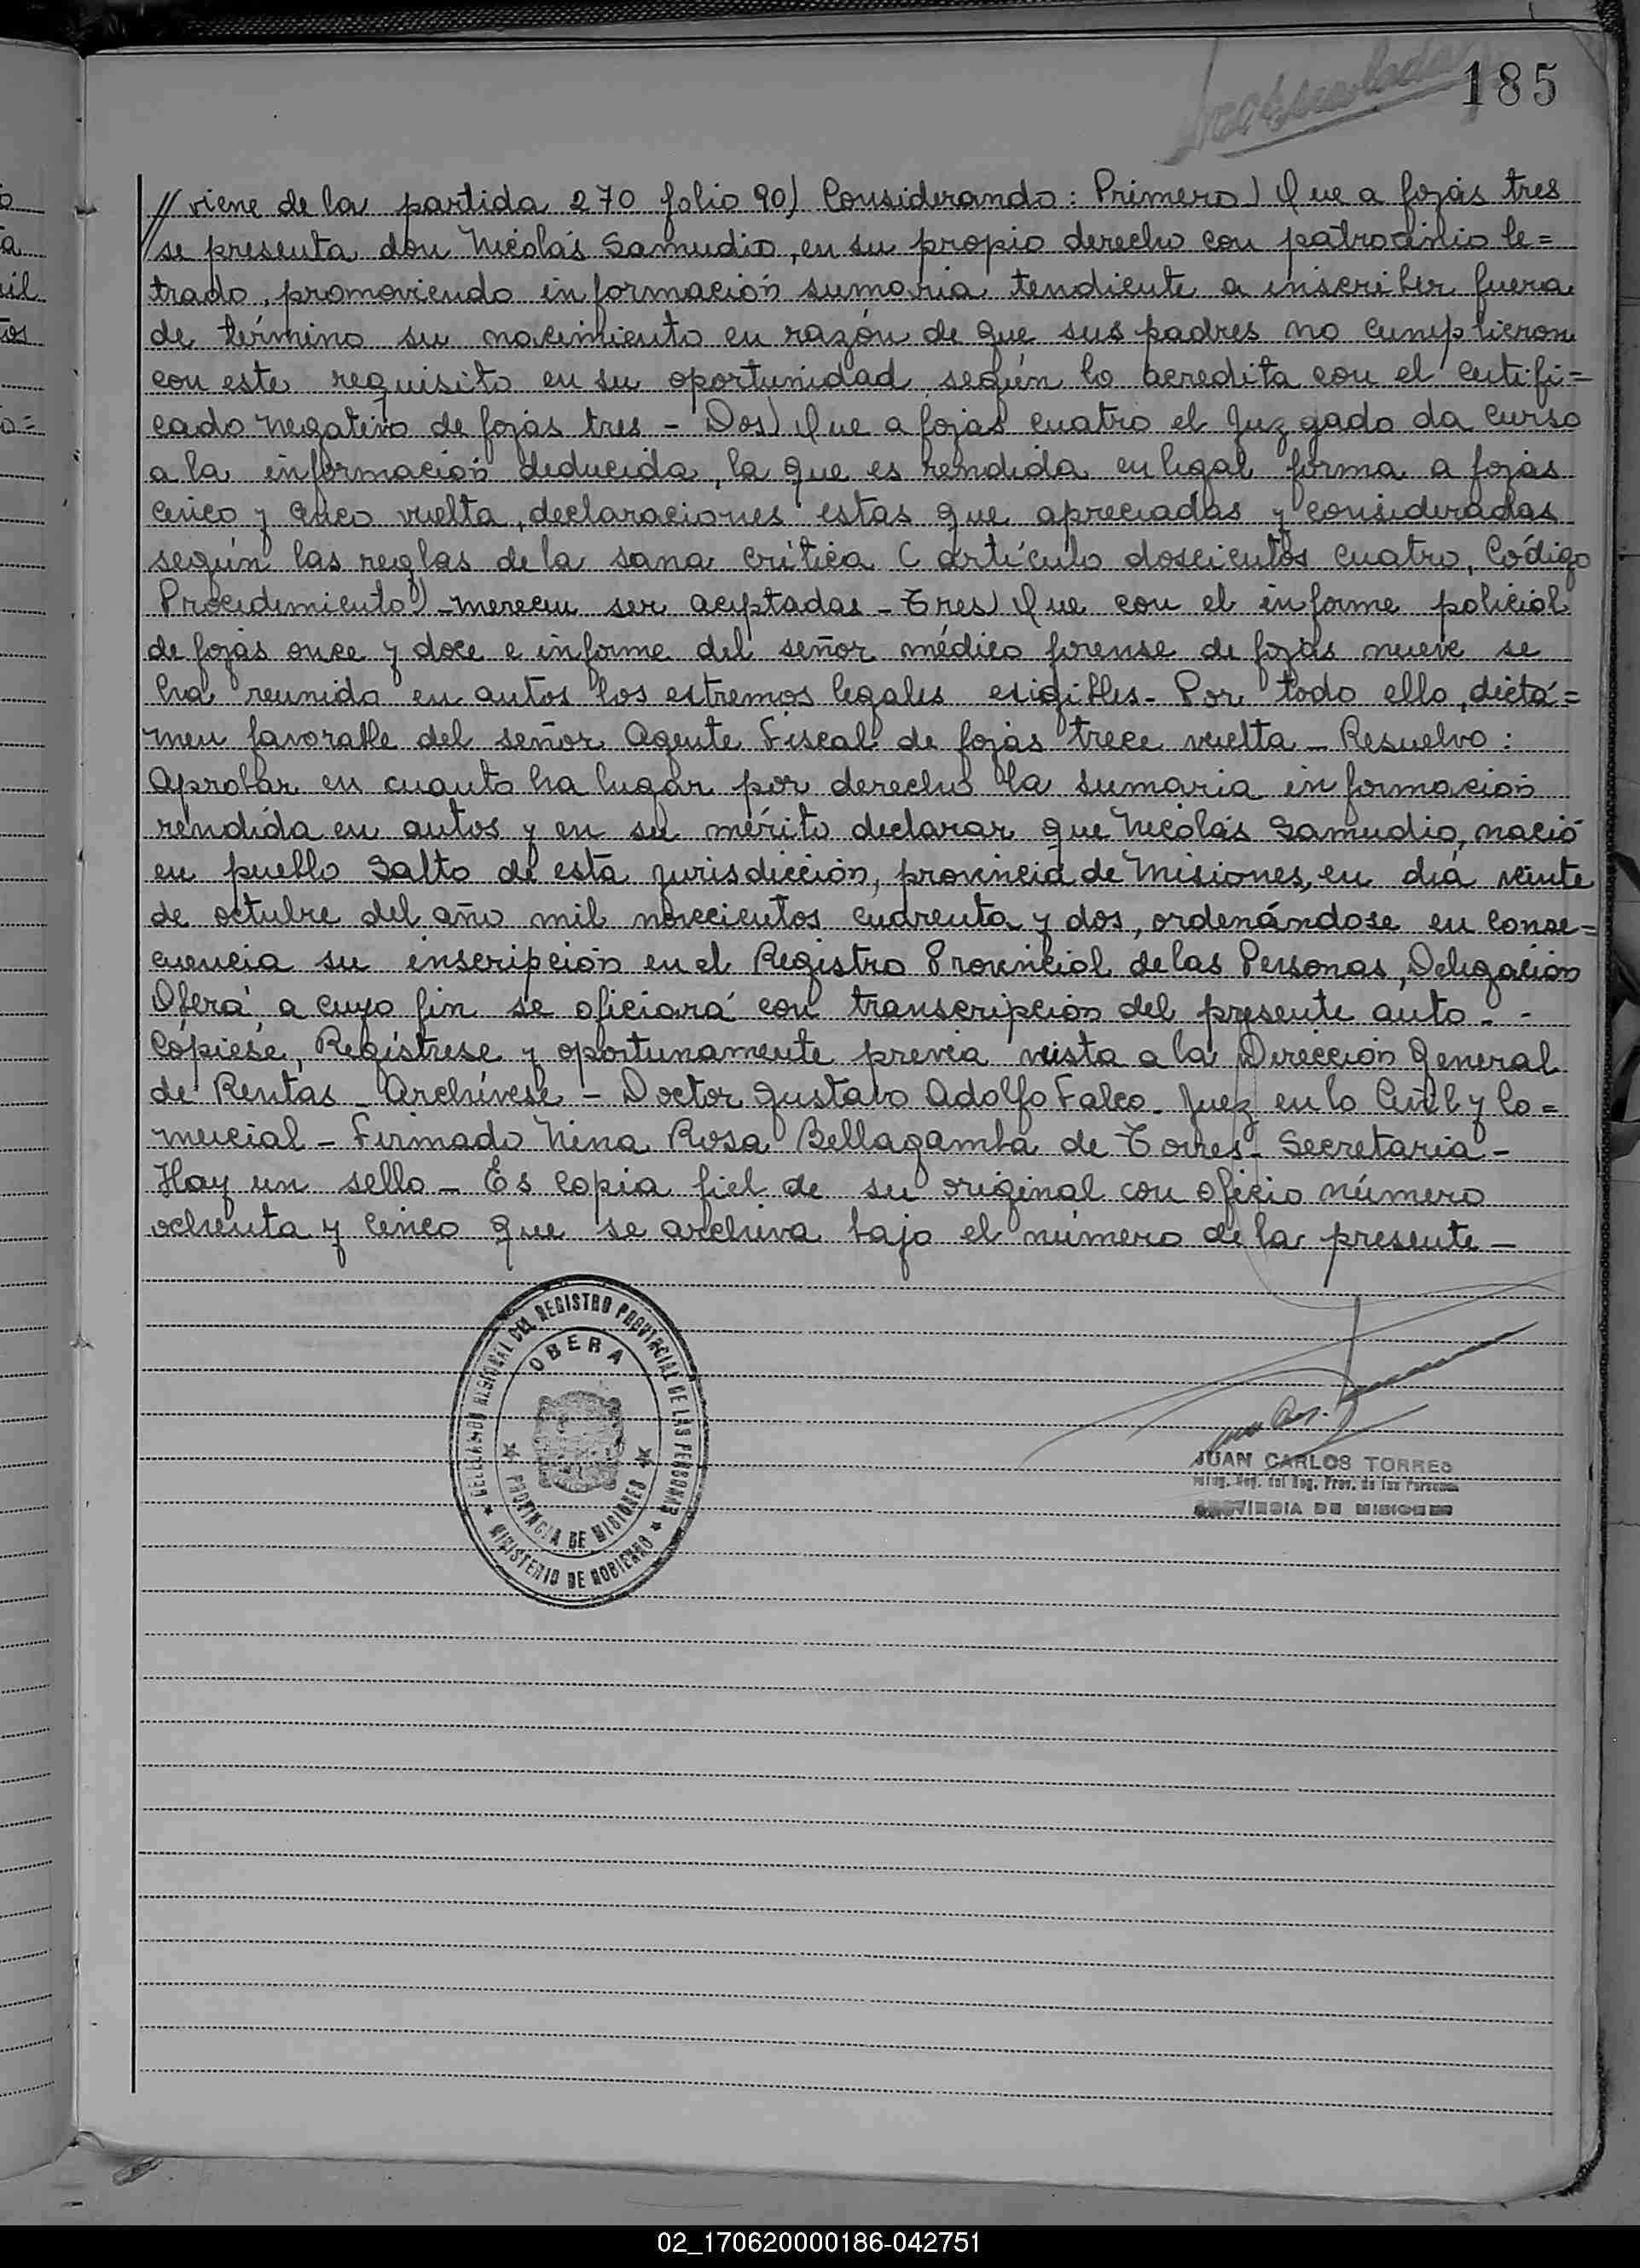 185
// viene de la partida 270 folio 90) Considerando: Primero) Que a fojas tres
se presenta don Nicolás Samudio, en su propio derecho con patrocinio le=
trado, promoviendo información sumaria tendiente a inscribir fuera
de término su nacimiento en razón de que sus padres no cumplieron
con este requisito en su oportunidad según lo acredita con el certifi=
cado negativo de fojas tres - Dos) Que a fojas cuatro el Juzgado da curso
a la información deducida, la que es rendida en legal forma a fojas
cinco y cinco vuelta, declaraciones estas que apreciadas y consideradas
según las reglas de la sana crítica (artículo doscientos cuatro, Código
Procedimiento) - merecen ser aceptadas - Tres) Que con el informe policial
de fojas once y doce e informe del señor médico forense de fojas nueve se
ha reunido en autos los estremos legales exigibles - Por todo ello, dictá=
men favorable del señor Agente Fiscal de fojas trece vuelta - Resuelvo:
Aprobar en cuanto ha lugar por derecho la sumaria información
rendida en autos y en su mérito declarar que Nicolás Samudio, nació
en pueblo Salto de esta jurisdicción, provincia de Misiones, en día veinte
de octubre del año mil novecientos cuarenta y dos, ordenándose en conse=
cuencia su inscripción en el Registro Provincial de las Personas, Delegación
Oberá a cuyo fin se oficiará con transcripción del presente auto - -
Cópiese, Regístrese y oportunamente previa vista a la Dirección General
de Rentas - Archívese - Doctor Gustavo Adolfo Falco - Juez en lo Civil y Co=
mercial - Firmado Nina Rosa Bellagamba de Torres - Secretaria -
Hay un sello - Es copia fiel de su original con oficio número
ochenta y cinco que se archiva bajo el número de la presente -
DEL REGISTRO PROVINCIAL DE LAS PERSONAS
OBERA
PROVINCIA DE MISIONES
MINISTERIO DE GOBIERNO
JUAN CARLOS TORRES
Reg. del Reg. Prov. de las Personas
PROVINCIA DE MISIONES
02_170620000186-042751